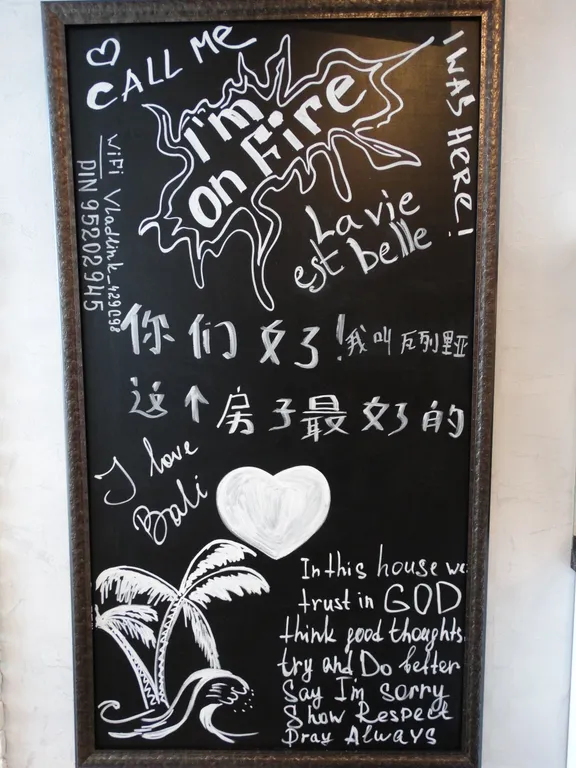 CALL ME
I'm
On Fire
I WAS HERE!
WiFi Vladlink_429C98
PIN 95202945
La vie
est belle
你们好!我叫瓦列里亚
这个房子最好的
I love
Bali
In this house we
trust in GOD
think good thoughts
try and Do better
Say I'm sorry
Show Respect
Pray Always